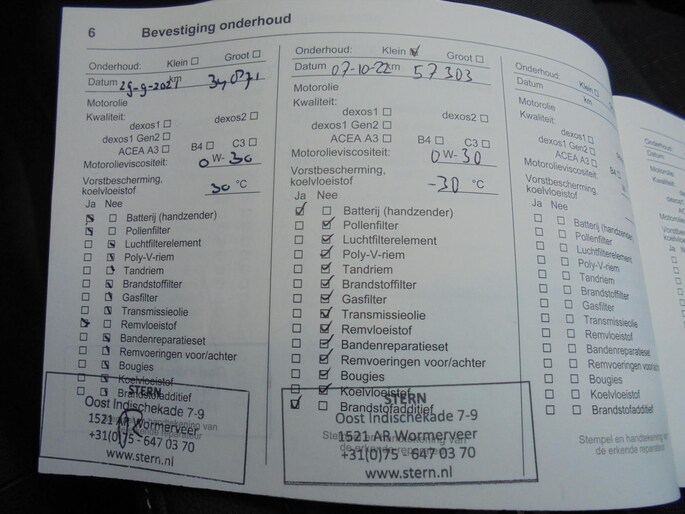 6 Bevestiging onderhoud
Onderhoud: Klein Groot
Datum 29-9-2021 km 34071
Motorolie
Kwaliteit:
dexos1 dexos2
dexos1 Gen2
ACEA A3 B4 C3
Motorolieviscositeit: 0 W-30
Vorstbescherming,
koelvloeistof 30 °C
Ja Nee
Batterij (handzender)
Pollenfilter
Luchtfilterelement
Poly-V-riem
Tandriem
Brandstoffilter
Gasfilter
Transmissieolie
Remvloeistof
Bandenreparatieset
Remvoeringen voor/achter
Bougies
Koelvloeistof
Brandstofadditief
STERN
Oost Indischekade 7-9
1521 AR Wormerveer
+31(0)75 - 647 03 70
www.stern.nl
Onderhoud: Klein Groot
Datum 07-10-22 km 57303
Motorolie
Kwaliteit:
dexos1 dexos2
dexos1 Gen2
ACEA A3 B4 C3
Motorolieviscositeit: 0 W-30
Vorstbescherming,
koelvloeistof -30 °C
Ja Nee
Batterij (handzender)
Pollenfilter
Luchtfilterelement
Poly-V-riem
Tandriem
Brandstoffilter
Gasfilter
Transmissieolie
Remvloeistof
Bandenreparatieset
Remvoeringen voor/achter
Bougies
Koelvloeistof
Brandstofadditief
STERN
Oost Indischekade 7-9
1521 AR Wormerveer
+31(0)75 - 647 03 70
www.stern.nl
Onderhoud: Klein
Datum km
Motorolie
Kwaliteit:
dexos1
dexos1 Gen2
ACEA A3
Motorolieviscositeit:
Vorstbescherming,
koelvloeistof
Ja Nee
Batterij (handzender)
Pollenfilter
Luchtfilterelement
Poly-V-riem
Tandriem
Brandstoffilter
Gasfilter
Transmissieolie
Remvloeistof
Bandenreparatieset
Remvoeringen voor/achter
Bougies
Koelvloeistof
Brandstofadditief
Stempel en handtekening
de erkende reparateur
Onderhoud:
Datum
Motorolie
Kwaliteit: